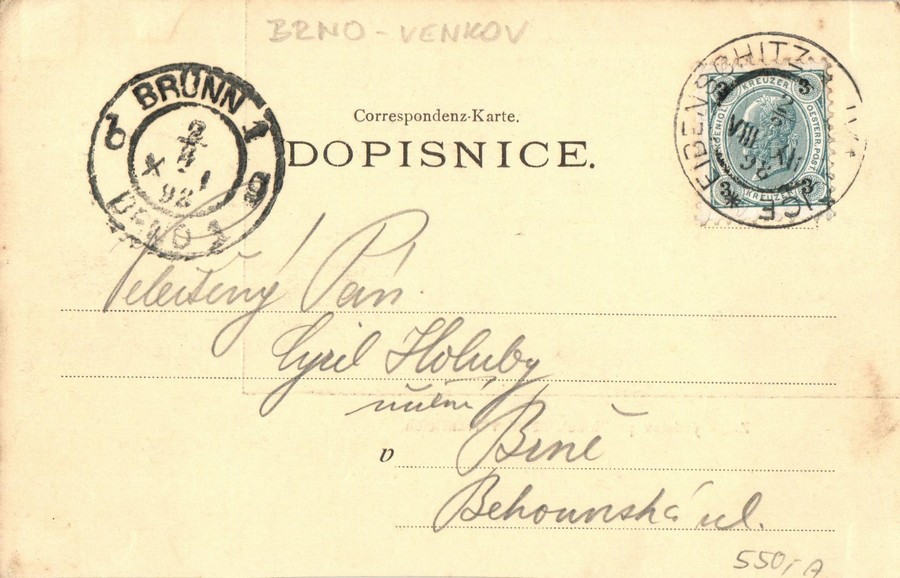 BRNO - VENKOV
BRÜNN 1
b g
2
X
98
BRNO 1
Correspondenz-Karte.
DOPISNICE.
EIBENSCHITZ
2
VIII-XII
98
ICE
KREUZER
3 3
OESTERR. POST
3 3
KREUZER
Velectěný Pán.
Cyril Holuby
v Brně
Behounská ul.
550,- A